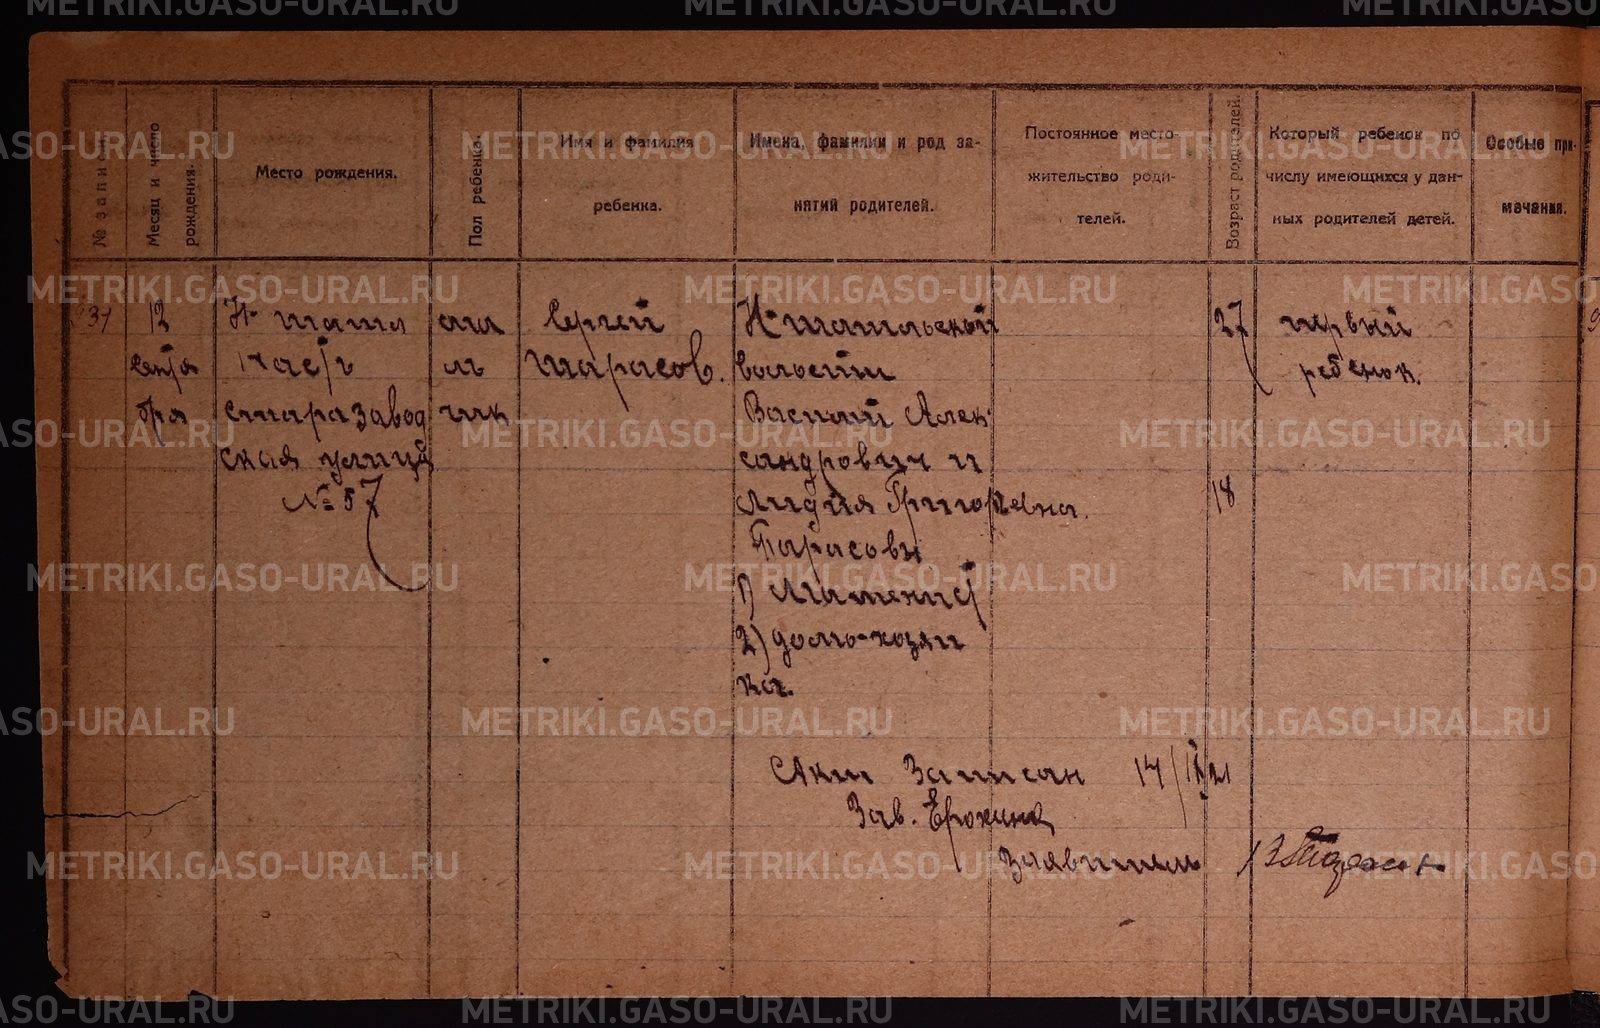 № записи.
Месяц и число
рождения.
Место рождения.
Пол ребенка.
Имя и фамилия
ребенка.
Имена, фамилии и род за-
нятий родителей.
Постоянное место-
жительство роди-
телей.
Возраст родителей.
Который ребенок по
числу имеющихся у дан-
ных родителей детей.
Особые при-
мечания.
12
сентя
бря
Н-тагил
часть
стара завод
ская улица
№ 57
маль
чик
Сергей
Тарасов.
Н-тагильской
волости
Василий Алек
сандрович и
Лидия Григорьевна.
Тарасовы
2) домо-хозяй
ка.
27
18
первый
ребенок.
Акт Записан 14/IX 21
Зав. Ерохина
Заявитель
METRIKI.GASO-URAL.RU